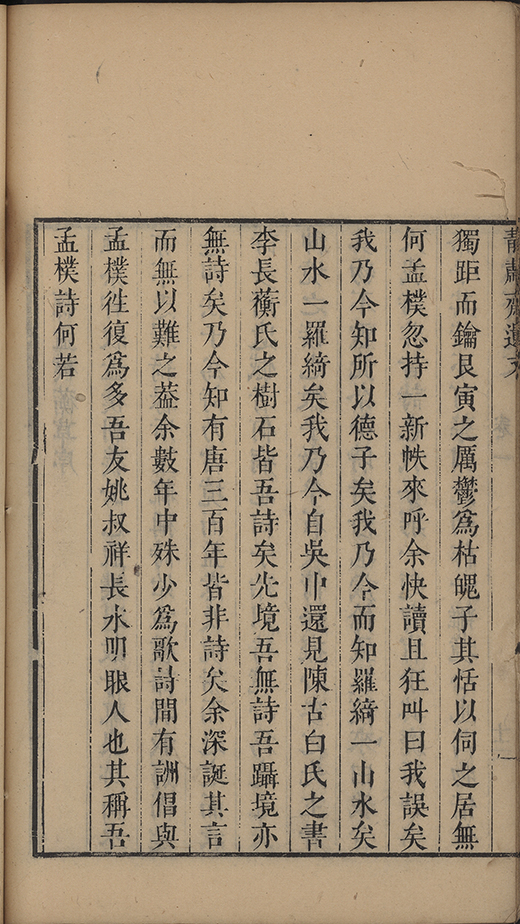 獨距而鑰艮寅之厲鬱爲枯魄子其恬以伺之居無
何孟樸忽持一新帙來呼余快讀且狂叫曰我誤矣
我乃今知所以德子矣我乃今而知羅綺一山水矣
山水一羅綺矣我乃今自吳中還見陳古白氏之書
李長蘅氏之樹石皆吾詩矣先境吾無詩吾躡境亦
無詩矣乃今知有唐三百年皆非詩矣余深誕其言
而無以難之葢余數年中殊少爲歌詩間有詶倡與
孟樸徃復爲多吾友姚叔祥長水明眼人也其稱吾
孟樸詩何若